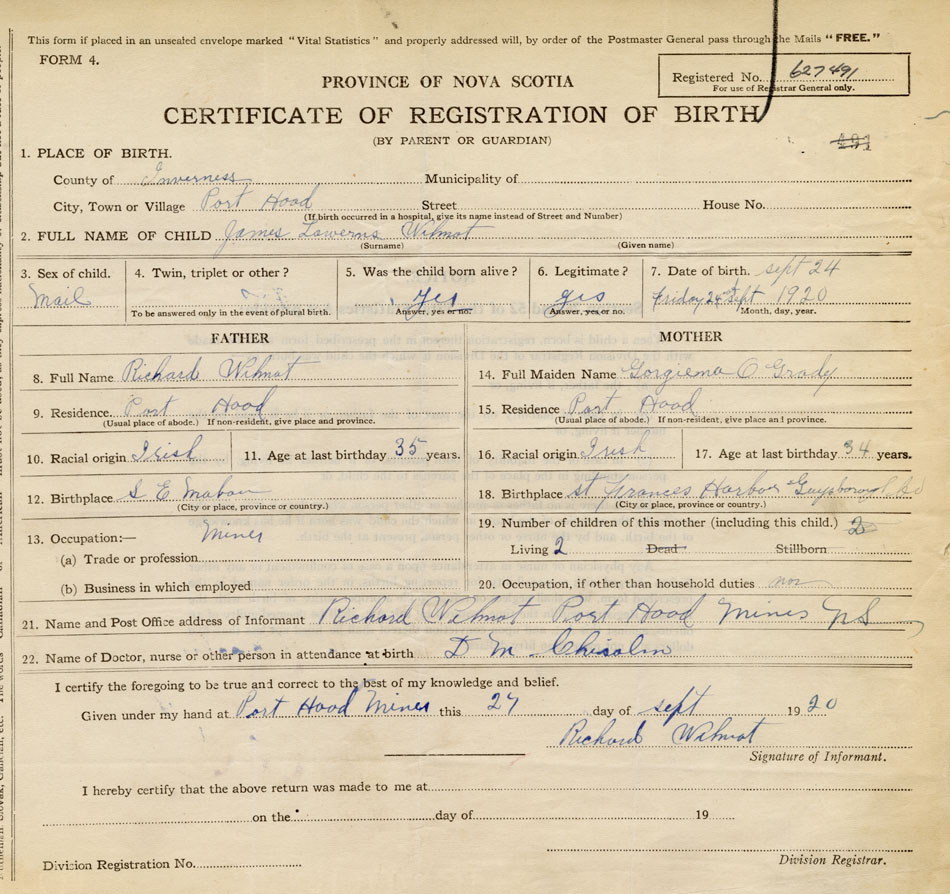 This form if placed in an unsealed envelope marked "Vital Statistics" and properly addressed will, by order of the Postmaster General pass through the Mails "FREE."
FORM 4.
Registered No. 627491
For use of Registrar General only.
PROVINCE OF NOVA SCOTIA
CERTIFICATE OF REGISTRATION OF BIRTH
(BY PARENT OR GUARDIAN)
491
1. PLACE OF BIRTH.
County of Inverness Municipality of
City, Town or Village Port Hood Street House No.
(If birth occurred in a hospital, give its name instead of Street and Number)
2. FULL NAME OF CHILD James Lawerns Wilmot
(Surname) (Given name)
3. Sex of child. 4. Twin, triplet or other? 5. Was the child born alive? 6. Legitimate? 7. Date of birth. sept 24
Mail yes yes Friday 24 Sept 1920
To be answered only in the event of plural birth. Answer, yes or no. Answer, yes or no. Month, day, year.
FATHER MOTHER
8. Full Name Richard Wilmot 14. Full Maiden Name Gorgiema O Grady
9. Residence. Port Hood 15. Residence Port Hood
(Usual place of abode.) If non-resident, give place and province. (Usual place of abode.) If non-resident, give place and province.
10. Racial origin Irish 11. Age at last birthday 35 years. 16. Racial origin Irish 17. Age at last birthday 34 years.
12. Birthplace S E Mabou 18. Birthplace St Frances Harbor Guysborough Co
(City or place, province or country.) (City or place, province or country.)
13. Occupation:— Miner 19. Number of children of this mother (including this child.) 2
(a) Trade or profession Living 2 Dead Stillborn
(b) Business in which employed 20. Occupation, if other than household duties non
21. Name and Post Office address of Informant Richard Wilmot Port Hood Mines NS
22. Name of Doctor, nurse or other person in attendance at birth D M Chisolm
I certify the foregoing to be true and correct to the best of my knowledge and belief.
Given under my hand at Port Hood Mines this 27 day of sept 1920
Richard Wilmot
Signature of Informant.
I hereby certify that the above return was made to me at
on the day of 19
Division Registration No.
Division Registrar.